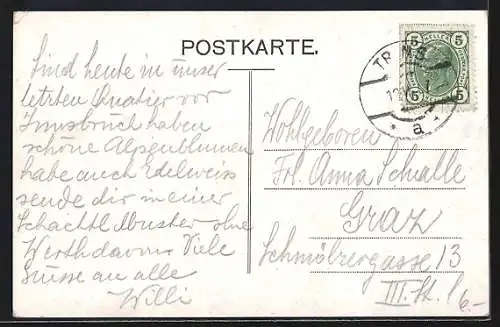 POSTKARTE.
Sind heute in unser
letzten Quatier vor
Innsbruck haben
schöne Alpenblumen
habe auch Edelweiss
sende dir in einer
Schachtl Muster ohne
Werth davon Viele
Grüsse an alle
Willi
5 HELLER 5
5 5
TRINS
a
Wohlgeboren
Frl. Anna Schalle
Graz
Schmölzergasse 13
III. St.
6-